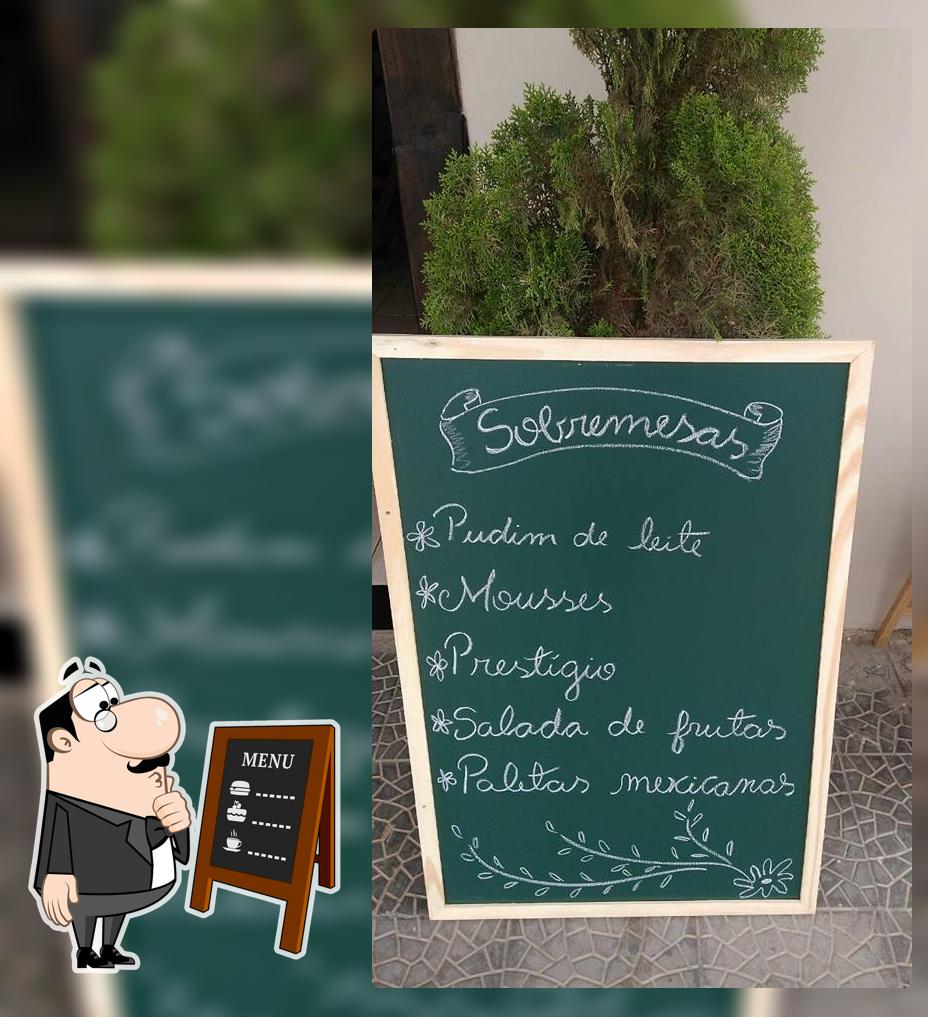 Sobremesas
Pudim de leite
Mousses
Prestígio
Salada de frutas
Paletas mexicanas
MENU